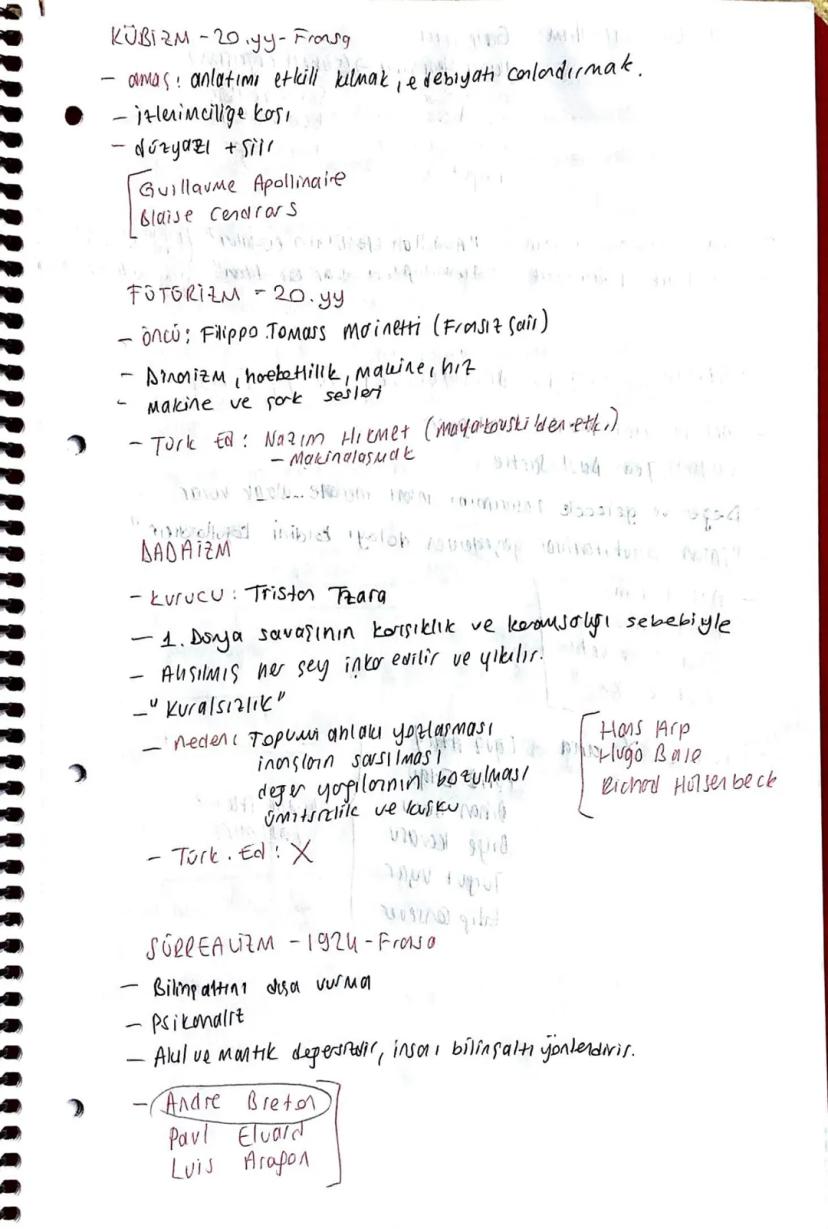 KÜBİZM - 20.yy - Fransa
- amaç: anlatımı etkili kılmak, edebiyatı canlandırmak.
- izlenimciliğe karşı
- düzyazı + şiir
Guillaume Apollinaire
Blaise Cendrars
FÜTÜRİZM - 20.yy
- öncü: Filippo Tomass Marinetti (Fransız şair)
- Dinamizm, hareketlilik, makine, hız
- makine ve çark sesleri
- Türk Ed: Nazım Hikmet (Mayakovski'den etk.)
- Makinalaşmak
DADAİZM
- kurucu: Tristan Tzara
- 1. Dünya savaşının karışıklık ve karamsarlığı sebebiyle
- Alışılmış her şey inkar edilir ve yıkılır.
- "kuralsızlık"
- neden: Toplumun ahlakı yozlaşması
inançların sarsılması
değer yargılarının bozulması
ümitsizlik ve kuşku
Hans Arp
Hugo Bale
Richard Hülsenbeck
- Türk. Ed: X
SÜRREALİZM - 1924 - Fransa
- Bilinçaltını dışa vurma
- Psikanaliz
- Akıl ve mantık değersizdir, insanı bilinçaltı yönlendirir.
- Andre Breton
Paul Eluard
Luis Aragon